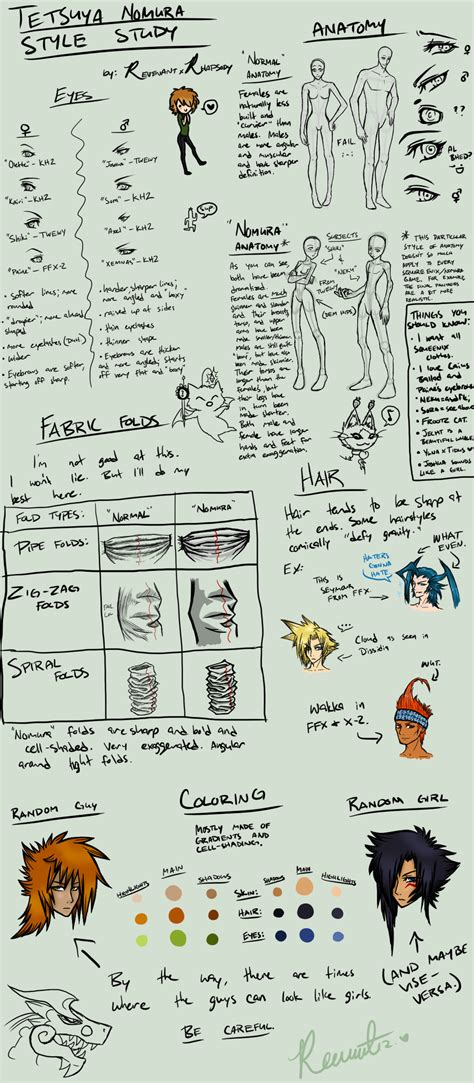 TETSUYA NOMURA
STYLE STUDY
by: REVENANT x RHAPSODY
EYES
♀ ♂
"Olette"-KH2
"Joshua"-TWEWY
"Kairi"-KH2
"Sora"-KH2
"Shiki"-TWEWY
"Axel"-KH2
"Paine"-FFX-2
"Xemnas"-KH2
• softer lines; more rounded
more eyelashes
• wider
• Eyebrows are softer, starting off sharp.
harder, sharper lines;
more angled and boxy
• raised up at sides
• thin eyelashes
• thinner shape
• Eyebrows are thicker
and more angled; starts
off very flat and boxy
Sup.
ANATOMY
"NORMAL"
ANATOMY
Females are
naturally less
built and
"curvier" than
males. Males
are more angular
and muscular
and have sharper
definition.
FAIL.
♀
♂
??
AL
BHED
"NOMURA"
ANATOMY*
SUBJECTS
"SHIKI"
FROM TWEWY
As you can see,
both have been
dramatized.
Females are much
skinnier and slender
and their breasts,
torso, and upper
arms have been
made smaller/thinner.
males are still quite
but have also
been made skinnier.
Their torsos are
longer than the
females', but
their legs have
in turn been
made shorter.
Both male and
female have larger
hands and feet for
extra exaggeration.
* THIS PARTICULAR
STYLE OF ANATOMY
DOESN'T SO MUCH
APPLY TO EVERY
SQUARE ENIX/NOMURA
GAME. FOR EXAMPLE
ARE A BIT MORE
REALISTIC.
THINGS YOU
SHOULD KNOW:
• I want all
SQUEENIX
clothes.
• I love Cains
Ballad and
• SORA =
• FROOTZ CAT.
• JECHT IS A
BEAUTIFUL WHALE.
• YLVA x TIDUS
• Joshua SOUNDS
LIKE A GIRL.
FABRIC FOLDS
I'm not good at this.
I won't lie. But I'll do my
best here.
FOLD TYPES: "NORMAL" "NOMURA"
PIPE FOLDS:
ZIG-ZAG
FOLDS
SPIRAL
FOLDS
"Nomura" folds are sharp and bold and
cell-shaded. Very exaggerated. Angular
around tight folds.
HAIR
Hair tends to be sharp at
the ends. Some hairstyles
comically "defy gravity."
EX:
THIS IS
SEYMOUR
FROM FFX
HATERS
GONNA
HATE.
WHAT
EVEN.
Cloud as seen in
Dissidia
WUT.
Wakka in
FFX & X-2.
COLORING
MOSTLY MADE OF
GRADIENTS AND
CELL-SHADINGS.
RANDOM GUY
RANDOM GIRL
HIGHLIGHTS MAIN SHADOWS SHADOWS MAIN HIGHLIGHTS
SKIN:
HAIR:
EYES:
By the way, there are times
where the guys can look like girls.
(AND MAYBE
VISE-
VERSA.)
BE CAREFUL.